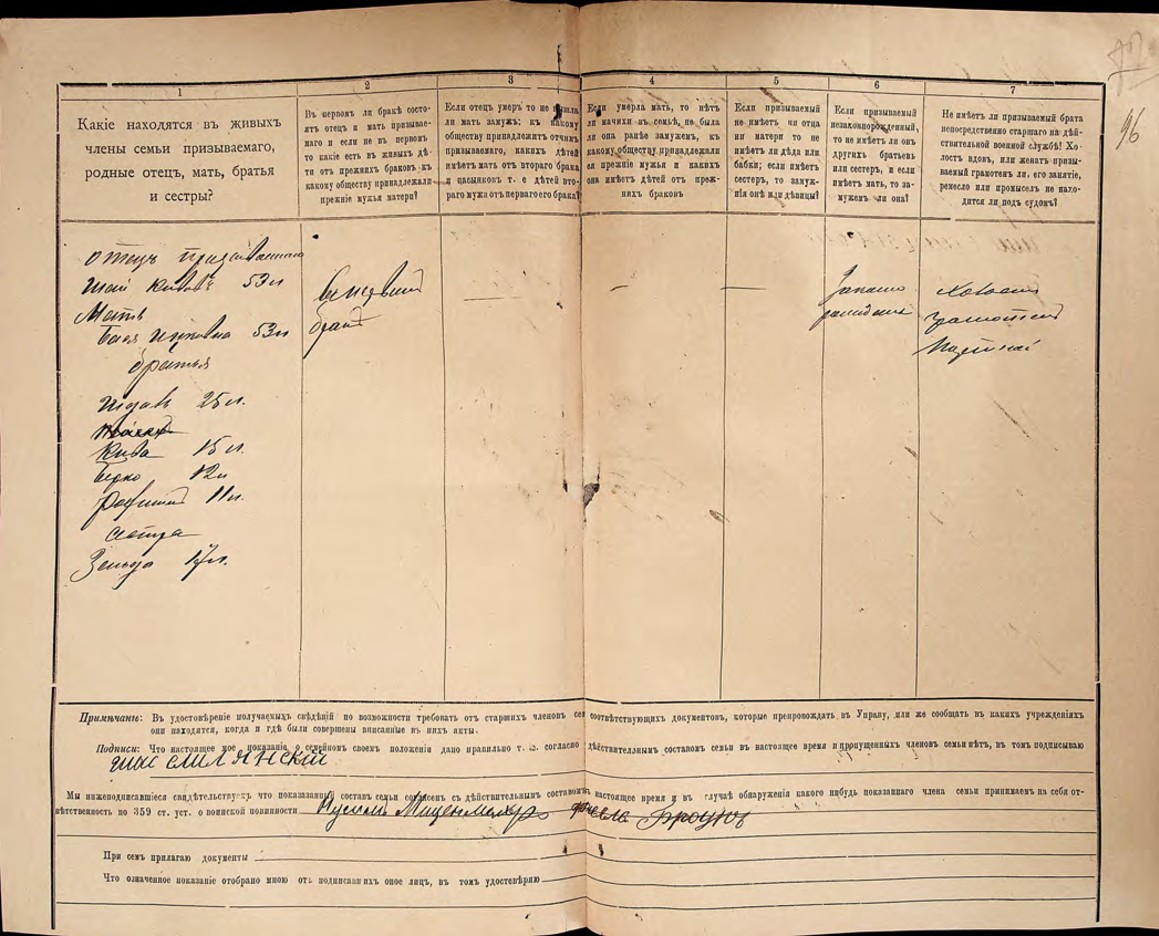 96
1
2
3
4
5
6
7
Какіе находятся въ живыхъ
члены семьи призываемаго,
родные отецъ, мать, братья
и сестры?
Въ первомъ ли бракѣ состо-
ятъ отецъ и мать призывае-
маго и если не въ первомъ
то какіе есть въ живыхъ дѣ-
ти отъ прежнихъ браковъ къ
какому обществу принадлежали
прежніе мужья матери?
Если отецъ умеръ то не вышла
ли мать замужъ; къ какому
обществу принадлежитъ отчимъ
призываемаго, какихъ дѣтей
имѣетъ мать отъ втораго брака
и пасынковъ т. е дѣтей вто-
раго мужа отъ перваго его брака?
Если умерла мать, то нѣтъ
ли мачихи въ семьѣ, не была
ли она ранѣе замужемъ, къ
какому обществу принадлежали
ея прежніе мужья и какихъ
она имѣетъ дѣтей отъ преж-
нихъ браковъ
Если призываемый
не имѣетъ ни отца
ни матери то не
имѣетъ ли дѣда или
бабки; если имѣетъ
сестеръ, то замуж-
нія онѣ или дѣвицы?
Если призываемый
незаконнорожденный,
то не имѣетъ ли онъ
другихъ братьевъ
или сестеръ, и если
имѣетъ мать, то за-
мужемъ ли она?
Не имѣетъ ли призываемый брата
непосредственно старшаго на дѣй-
ствительной военной службѣ! Хо-
лостъ вдовъ, или женатъ призы-
ваемый грамотенъ ли, его занятіе,
ремесло или промыселъ не нахо-
дится ли подъ судомъ?
отецъ
53 л
Мать
53 л
братья
25 л.
Кива 15 л.
Берко 12 л
11 л.
сестра
Зельда 17 л.
бракѣ
Холостъ
грамотный
Примѣчаніе: Въ удостовѣреніе получаемыхъ свѣдѣній по возможности требовать отъ старшихъ членовъ сем соотвѣтствующихъ документовъ, которые препровождать въ Управу, или же сообщать въ какихъ учрежденіяхъ
они находятся, когда и гдѣ были совершены вписанные въ нихъ акты.
Подписи: Что настоящее мое показаніе о семейномъ своемъ положеніи дано правильно т. е. согласно дѣйствительнымъ составомъ семьи въ настоящее время и пропущенныхъ членовъ семьи нѣтъ, въ томъ подписываю
шае смилянскій
Мы нижеподписавшіеся свидѣтельствуемъ что показанный составъ семьи согласенъ съ дѣйствительнымъ составомъ въ настоящее время и въ случаѣ обнаруженія какого нибудь показаннаго члена семьи принимаемъ на себя от-
вѣтственность по 359 ст. уст. о воинской повинности
При семъ прилагаю документы
Что означенное показаніе отобрано мною отъ подписавшихъ оное лицъ, въ томъ удостовѣряю